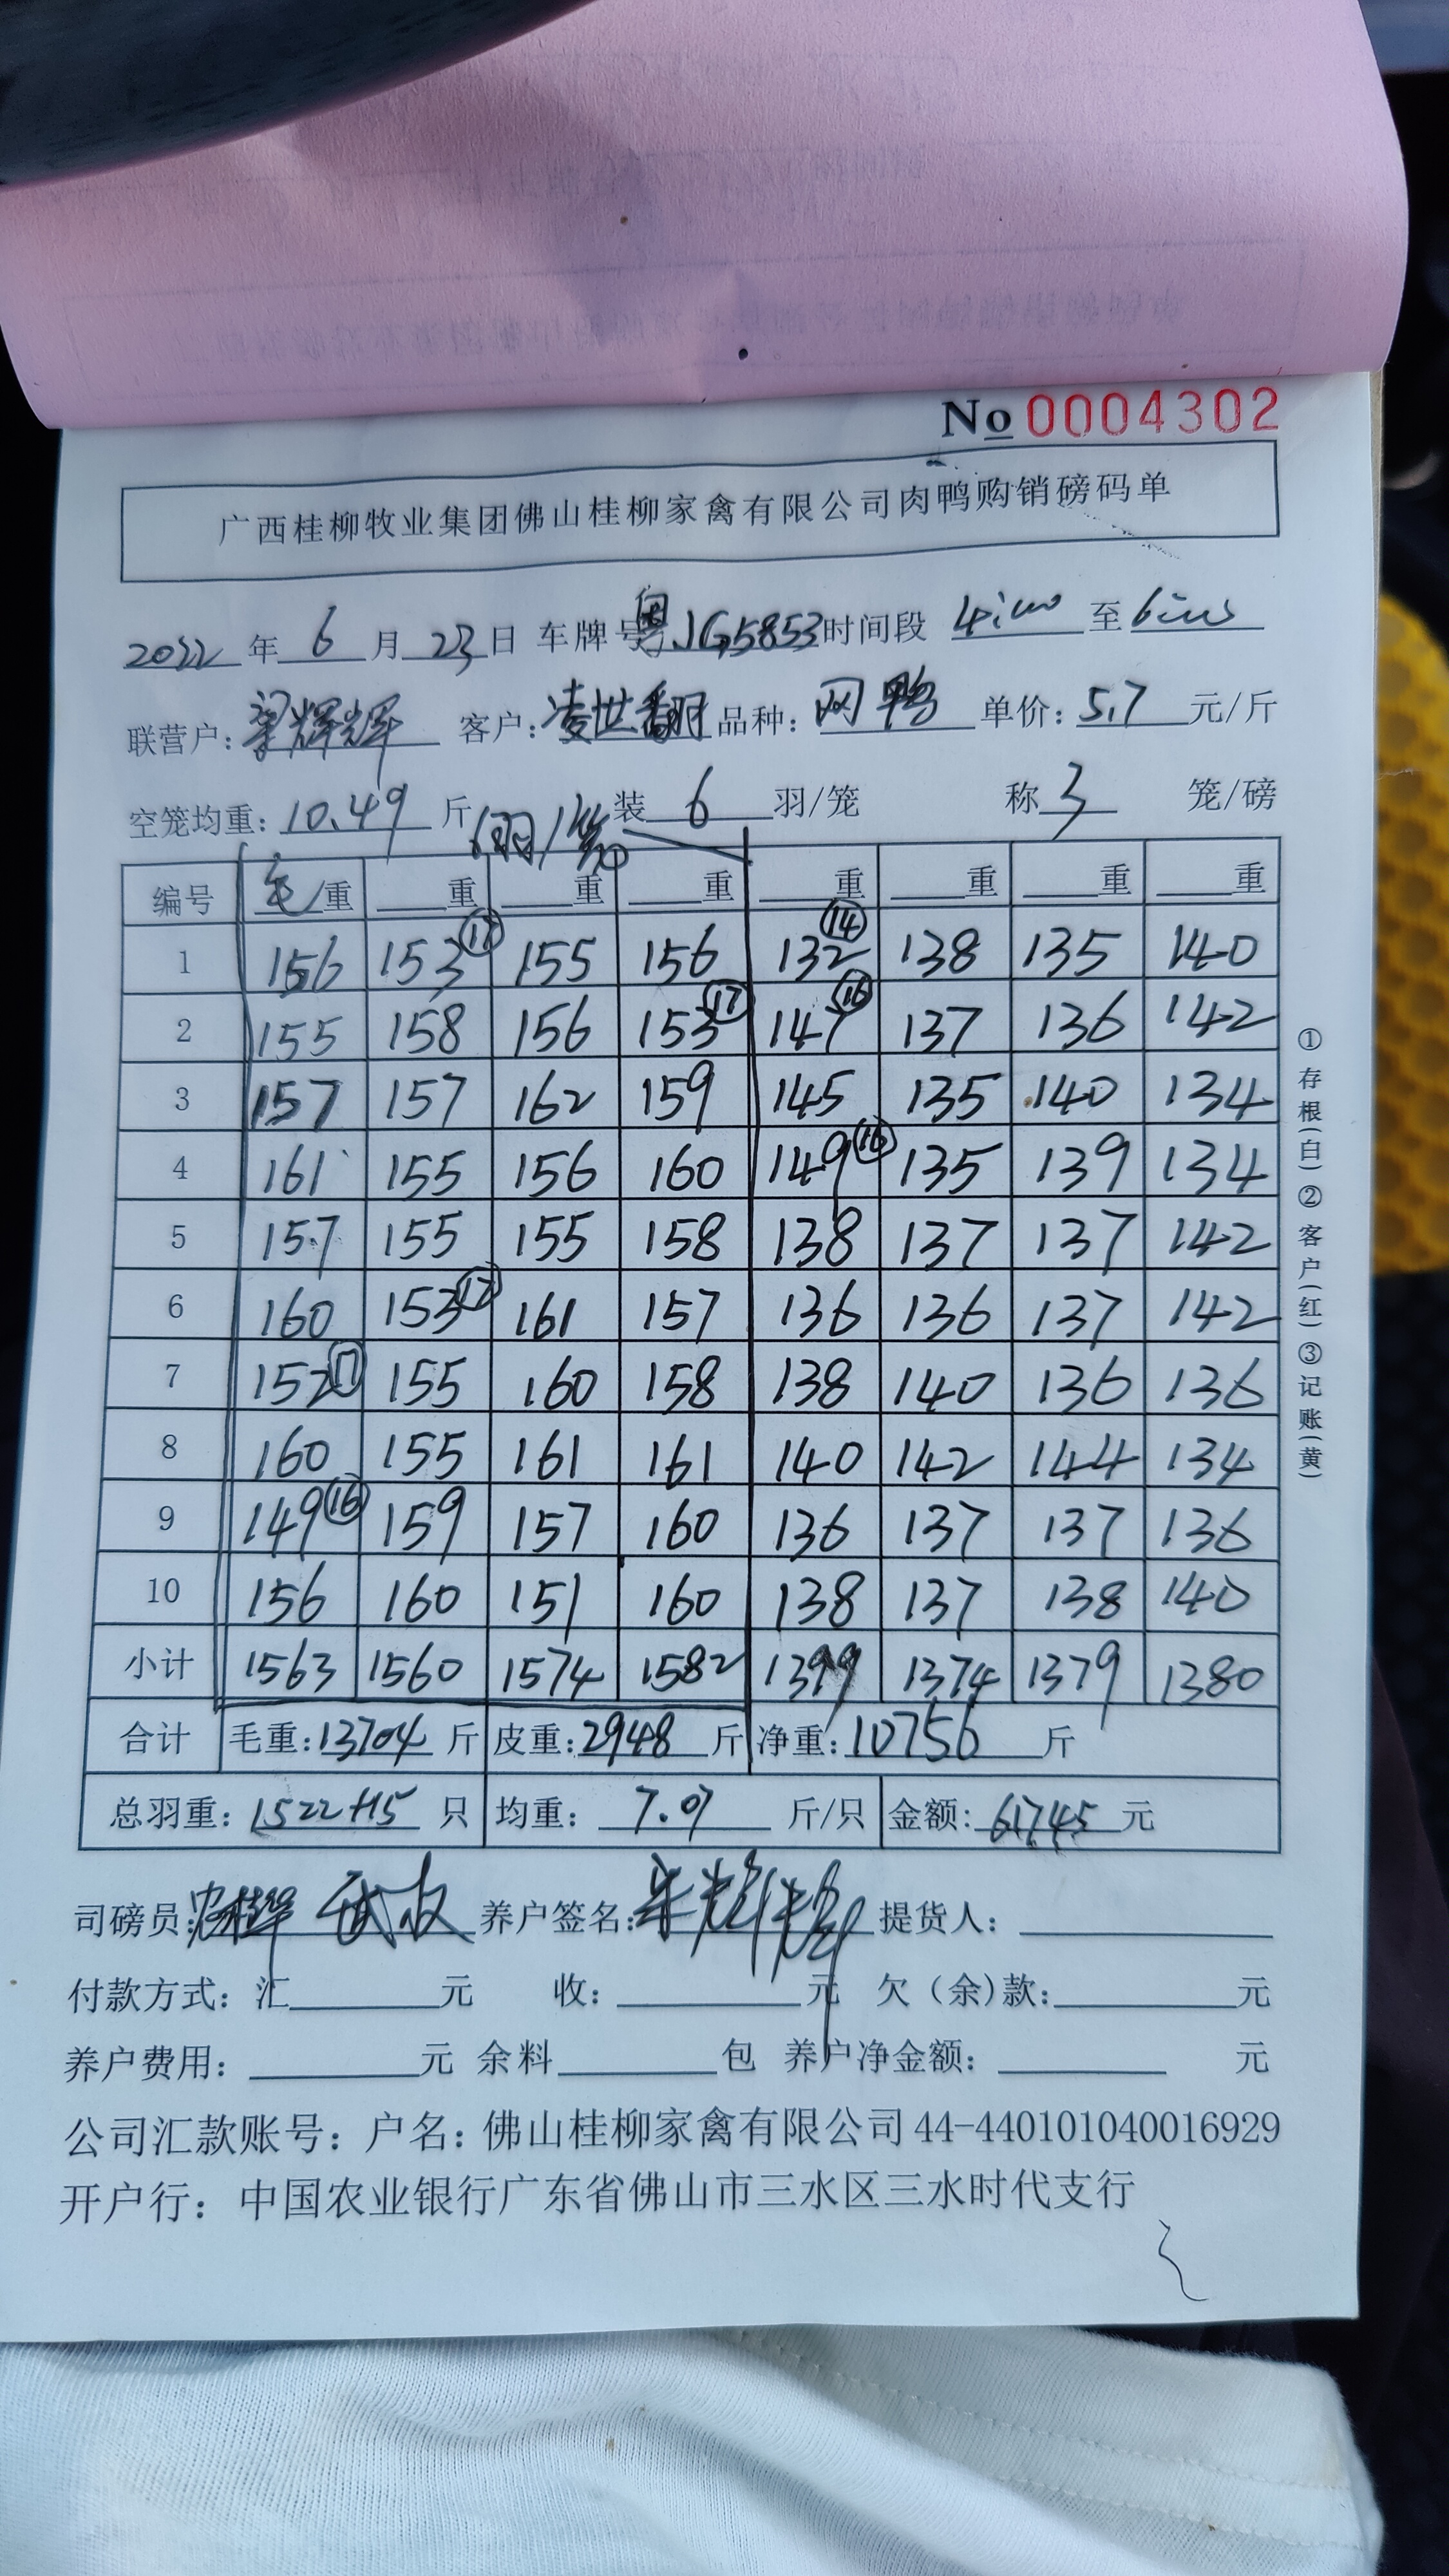 No 0004302
广西桂柳牧业集团佛山桂柳家禽有限公司肉鸭购销磅码单
2022年6月23日 车牌号粤JG5853时间段 4:00 至 6:00
联营户:梁辉辉 客户:凌世翻 品种:网鸭 单价:5.7元/斤
空笼均重:10.49斤 装6羽/笼 称3笼/磅
羽/笼
编号 毛/重 重 重 重 重 重 重 重
1 156 153⑰ 155 156 132⑭ 138 135 140
2 155 158 156 153⑰ 147⑯ 137 136 142
3 157 157 162 159 145 135 140 134
4 161 155 156 160 149⑯ 135 139 134
5 157 155 155 158 138 137 137 142
6 160 153⑰ 161 157 136 136 137 142
7 152⑰ 155 160 158 138 140 136 136
8 160 155 161 161 140 142 144 134
9 149⑯ 159 157 160 136 137 137 136
10 156 160 151 160 138 137 138 140
小计 1563 1560 1574 1582 1399 1374 1379 1380
合计 毛重:13704斤 皮重:2948斤 净重:10756斤
总羽重:1522+15只 均重:7.07斤/只 金额:61745元
司磅员: 养户签名: 提货人:
付款方式:汇 元 收: 元 欠(余)款: 元
养户费用: 元 余料 包 养户净金额: 元
公司汇款账号:户名:佛山桂柳家禽有限公司44-440101040016929
开户行:中国农业银行广东省佛山市三水区三水时代支行
①存根(白)②客户(红)③记账(黄)